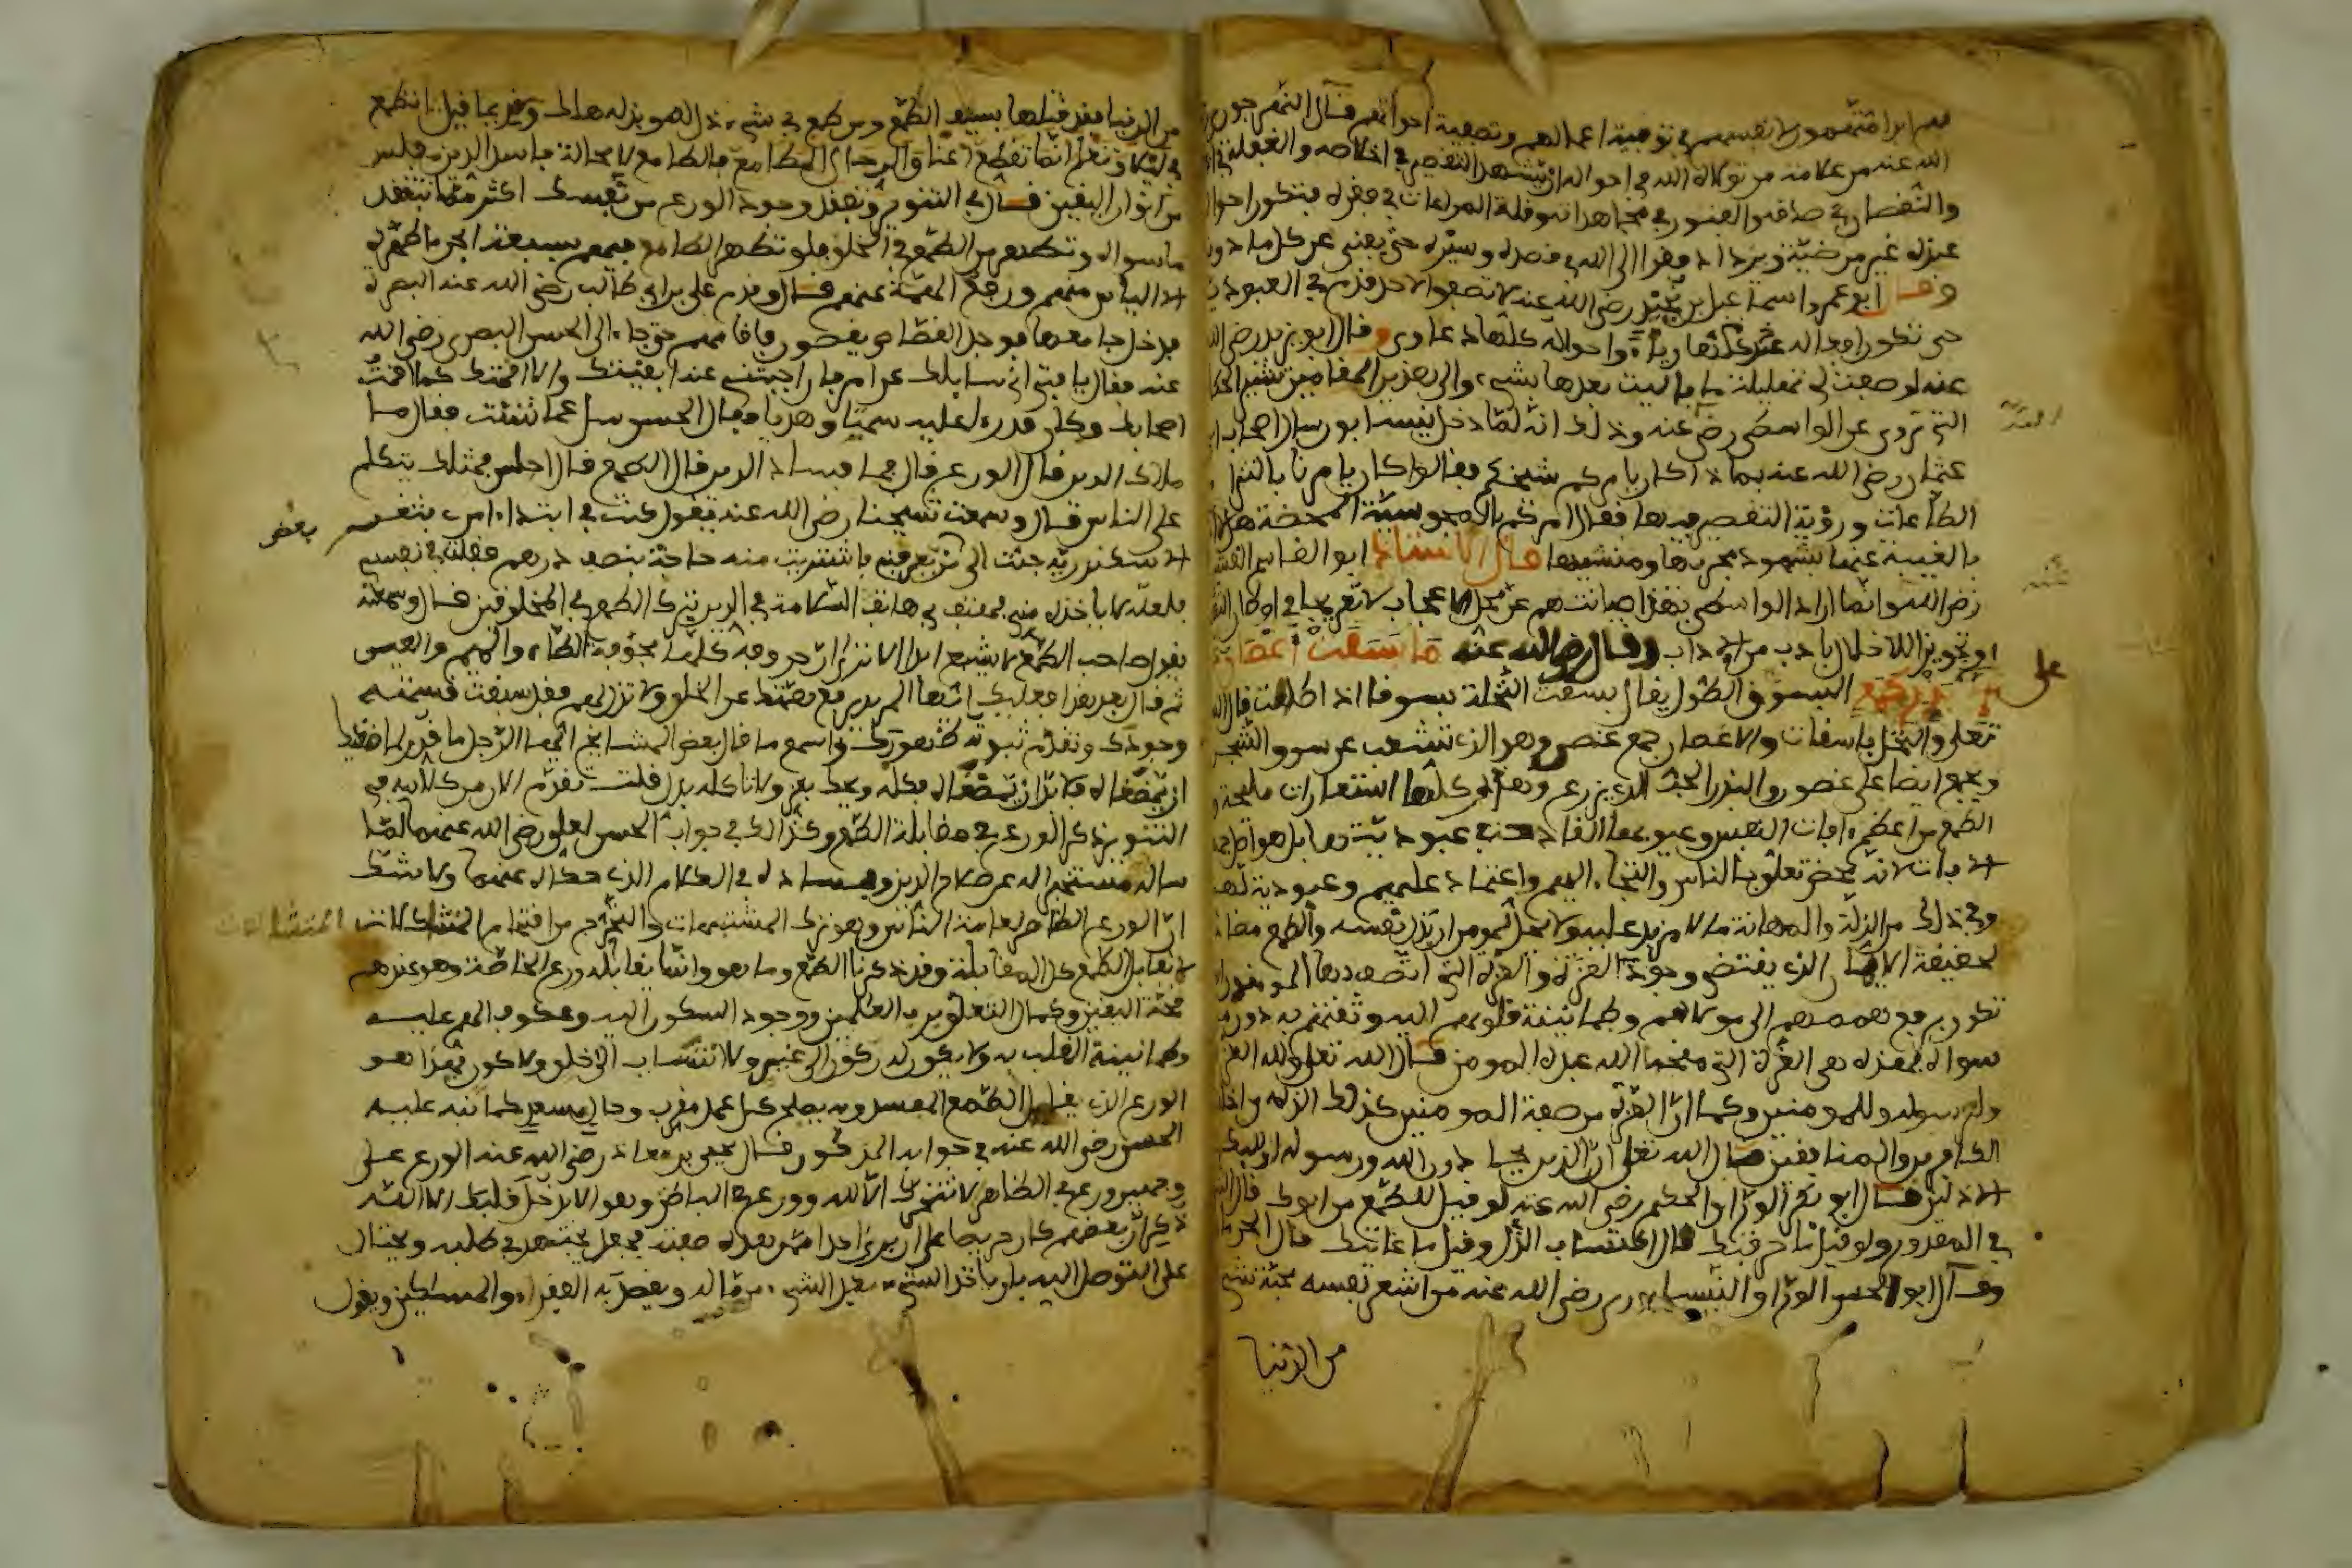 فهم ابدا متهمون لانفسهم في توفية اعمالهم وتصفية احوالهم فـال النهرجوري
الله عنه من علامة من تولاه الله في احواله ان يشهد التقصير في اخلاصه والغفلة في
والنقصان في صدقه والفتور في مجاهداته وقلة المراعات في فقره فتكون احواله
عنده غير مرضية ويزداد فقرا الى الله في قصده وسيره حتى يفنى عن كل ما دونه
وقـال ابو عمرو اسماعيل بن نجيد رضي الله عنه لا تصفوا لاحد قدم في العبودية
حتى تكون افعاله عنده كلها رياء واحواله كلها دعاوى وقال ابو يزيد رضي الله
عنه لو صفت لي تهليلة ما باليت بعدها بشيء والى هذين المقامين تشير الحكاية
التي تروى عن الواسطي رضي عنه وذلك انه لما دخل نيسابور سال اصحاب ابي
عثمان رضي الله عنه بماذا كان يامركم شيخكم فقالوا كان يامرنا بالتزام
الطاعات ورؤية التقصير فيها فقال امركم بالمجوسية المحضة هلا امركم
بالغيبة عنها بشهود مجريها ومنشيها قال الاستاذ ابو القاسم القشيري
رضي الله وانما اراد الواسطي بهذا صيانتهم عن محل الاعجاب لا تعريجا في اوطان التقصير
او تجويزا للاخلال بادب من الاداب وقـال رضي الله عنه ما بسقت اغصان
ذل الا على بذر طمع البسوق الطول يقال بسقت النخلة بسوقا اذا طالت قال الله
تعلى والنخل باسقات والاغصان جمع غصن وهو الذي تشعب عن سوق الشجر
ويجمع ايضا على غصون والبذر الحب الذي يزرع وهذه كلها استعارات مليحة
الطمع من اعظم افات النفس وعيوبها القادحة في عبوديتها بل هو اصل جميع
الافات لانه محض تعلق بالناس والتجاء اليهم واعتماد عليهم وعبودية لهم
وفي ذلك من الذلة والمهانة ما لا مزيد عليه ولا يحل لمومن ان يذل نفسه والطمع مضاد
لحقيقة الايمان الذي يقتضي وجود العزة والعزة التي اتصف بها المومنون
تكون برفع هممهم الى مولاهم وطمانينة قلوبهم اليه وثقتهم به دون
سواه فهذه هي العزة التي منحها الله عبده المومن قـال الله تعلى ولله العزة
ولرسوله وللمومنين وكما ان العزة من صفة المومنين كذلك الذلة من اخلاق
الكافرين والمنافقين قـال الله تعلى ان الذين يحادون الله ورسوله اوليك في
الاذلين قـال ابو بكر الوراق الحكيم رضي الله عنه لو قيل للطمع من ابوك قال الشك
في المقدور ولو قيل ما حرفتك قال اكتساب الذل وقيل ما غايتك قال الحرمان
وقـال ابو الحسن الوراق النيسابوري رضي الله عنه من اشعر نفسه محبة شيء
من الدنيا
على
من الدنيا فقد قتلها بسيف الطمع ومن طمع في شيء ذل له وبذله هلك وقديما قيل
ما سواه وتطهير من الطمع في الخلق فلو تطهر الطامع فيهم بسبعة ابحر ما طهره
الا الياس منهم ورفع الهمة عنهم قـال وقدم علي بن ابي طالب رضي الله عنه البصرة
فدخل جامعها فوجد القصاص يقصون فاقامهم حتى جاء الى الحسن البصري رضي الله
عنه فقال يا فتى اني سايلك عن امر فان اجبتني عنه ابقيتك والا اقمتك كما اقمت
اصحابك وكان قد راى عليه سمتا وهديا فقال الحسن سل عما شئت فقال ما
ملاك الدين قال الورع قال فما فساد الدين قال الطمع قـال اجلس فمثلك يتكلم
على الناس قـال وسمعت شيخنا رضي الله عنه يقول كنت في ابتداء امري بثغر
الاسكندرية جئت الى من يعرفني فاشتريت منه حاجة بنصف درهم فقلت في نفسي
فلعله لا ياخذه مني فهتف بي هاتف السلامة في الدين بترك الطمع في المخلوقين قـال وسمعته
يقول صاحب الطمع لا يشبع ابدا الا ترى ان حروفه كلها مجوفة الطاء والميم والعين
ثم قال بعد هذا فعليك ايها المريد برفع همتك عن الخلق ولا تذل لهم فقد سبقت قسمته
وجودك وتقدم ثبوته ظهورك واسمع ما قال بعض المشايخ ايها الرجل ما قدر لماضغيك
ان يمضغاه فلا بد ان يمضغاه فكله ويحك بعز ولا تاكله بذل قلت تقدم الان من كلامه في
التنوير ذكر الورع في مقابلة الطمع وكذلك في جواب الحسن لعلي رضي الله عنهما لما
ساله مستخبرا له عن صلاح الدين وفساده في الكلام الذي حكاه عنهما ولا شك
ان الورع الظاهر لعامة الناس وهو ترك المشتبهات والتحرج من اقتحام المشكلات المتشابهات
لا يقابل الطمع كل المقابلة وقد ذكرنا الطمع وما هو وانما يقابله ورع الخاصة وهو عندهم
صحة اليقين وكمال التعلق برب العالمين ووجود السكون اليه وعكوف الهم عليه
وطمانينة القلب به ولا يكون له ركون الى غيره ولا انتساب الى خلق ولا كون فهذا هو
الورع الذي يقابل الطمع المفسد وبه يصلح كل عمل مقرب وحال مسعد كما نبه عليه
الحسن رضي الله عنه في جوابه المذكور قـال يحيى بن معاذ رضي الله عنه الورع على
وجهين ورع في الظاهر لا تتحرك الا لله وورع في الباطن وهو الا يدخل قلبك الا الله
ذكر ان بعضهم كان حريصا على ان يرى احدا ممن هذه صفته فجعل يجتهد في طلبه ويحتال
على التوصل اليه بان ياخذ الشيء بعد الشيء من ماله ويقصد به الفقراء والمساكين ويقول
بعض